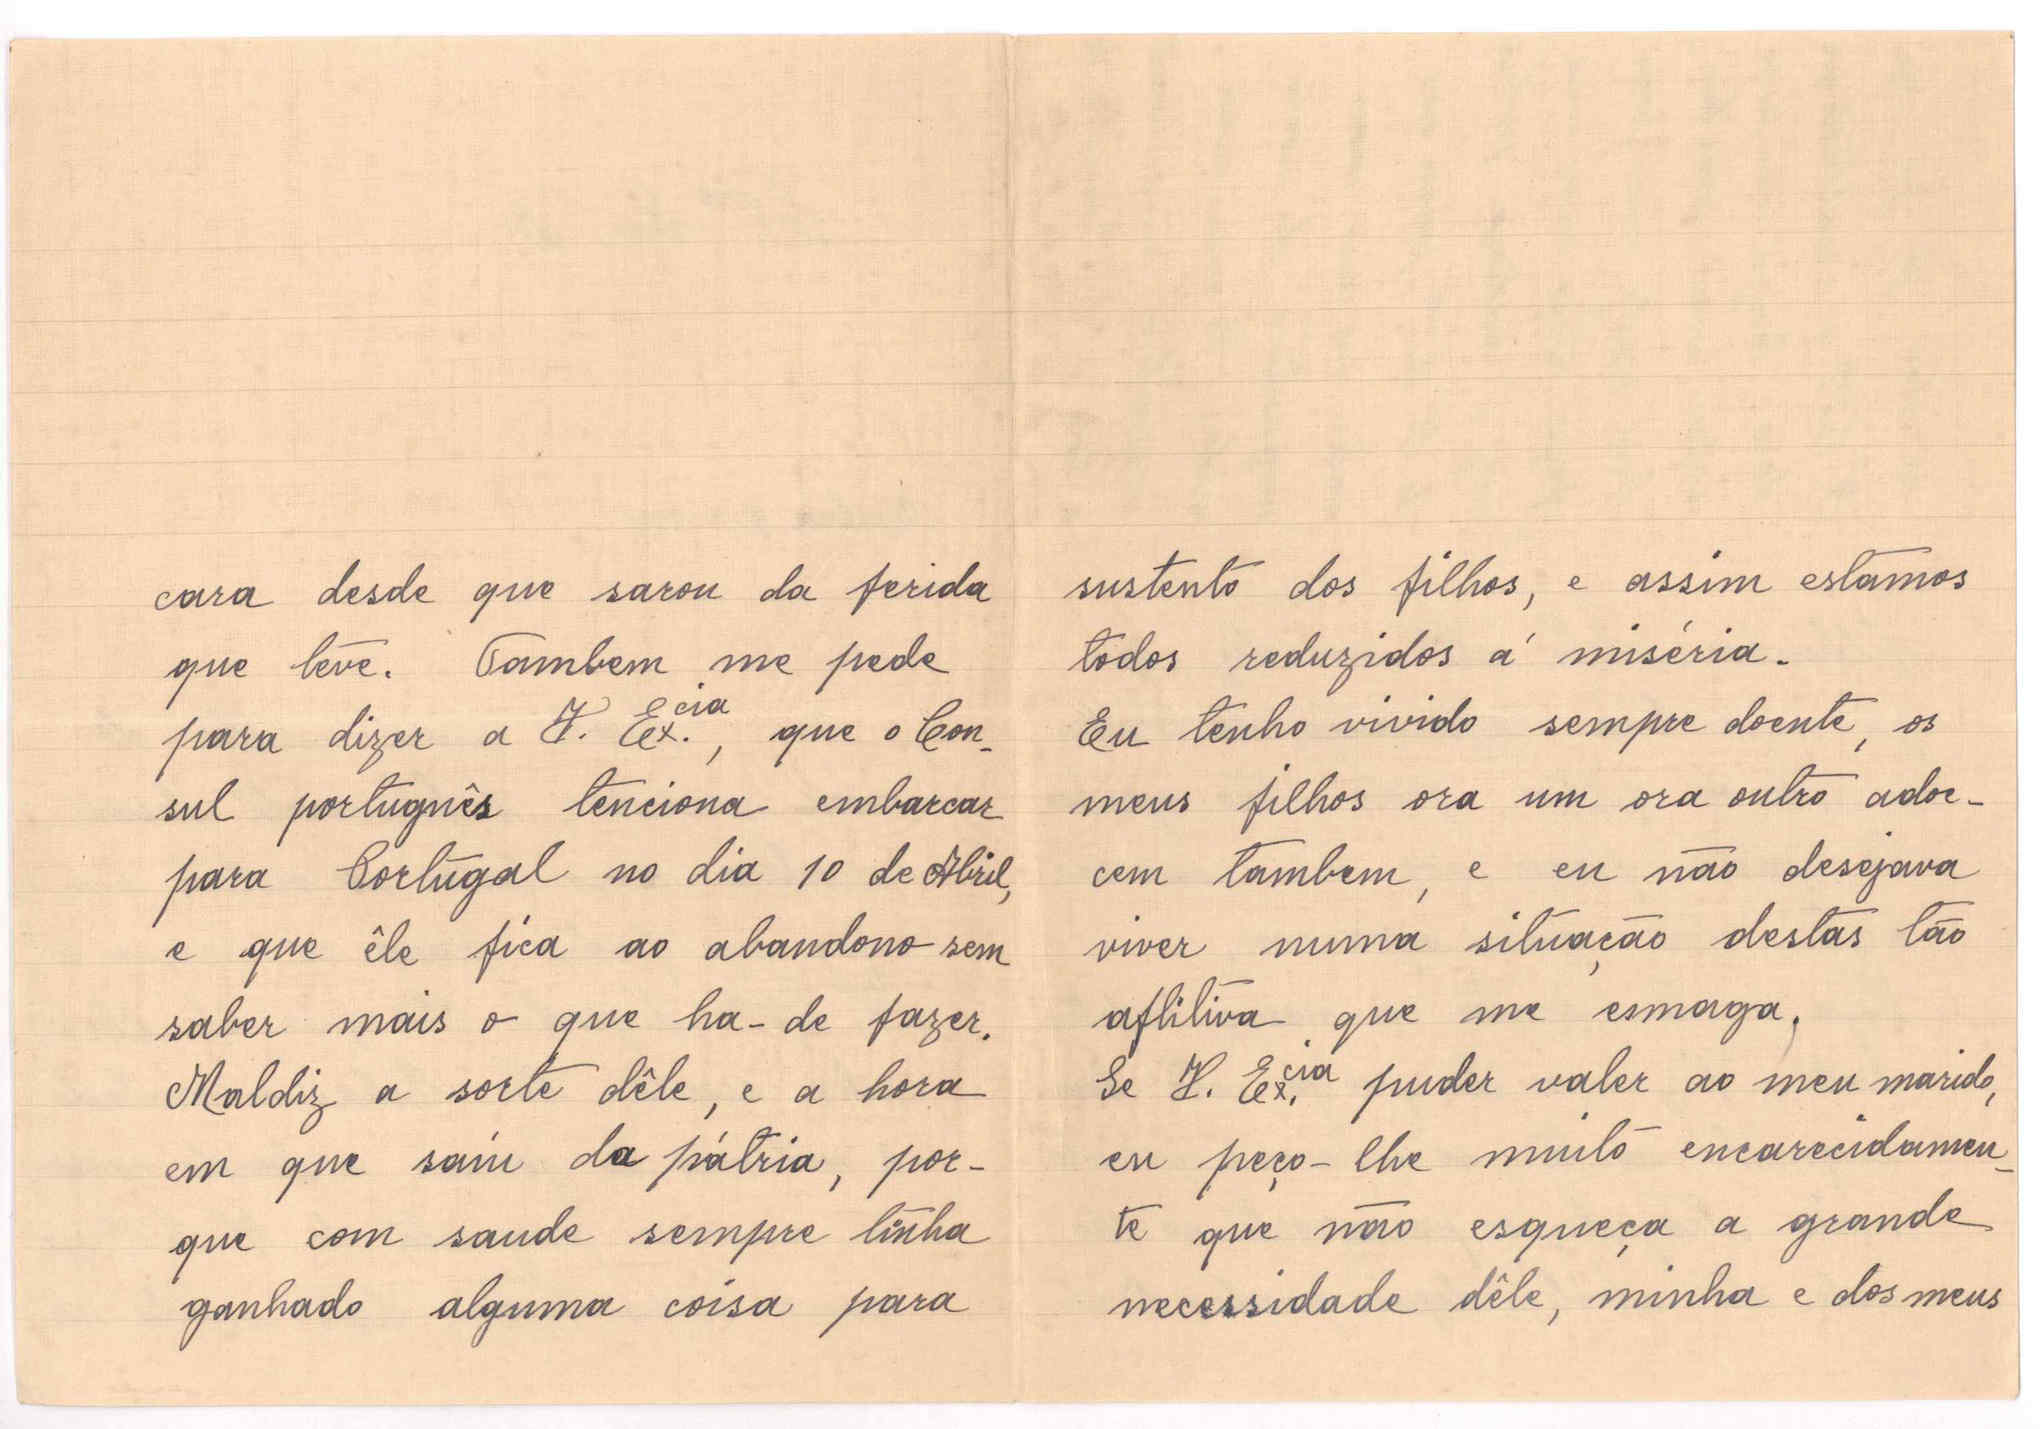 cara desde que sarou da ferida
que teve. Tambem me pede
para dizer a V. Ex.cia, que o Con-
sul português tenciona embarcar
para Portugal no dia 10 de Abril,
e que êle fica ao abandono sem
saber mais o que ha-de fazer.
Maldiz a sorte dêle, e a hora
em que saíu da pátria, por-
que com saude sempre tinha
ganhado alguma coisa para
sustento dos filhos, e assim estamos
todos reduzidos á miséria.
Eu tenho vivido sempre doente, os
meus filhos ora um ora outro adoe-
cem tambem, e eu não desejava
viver numa situação destas tão
aflitiva que me esmaga.
Se V. Ex.cia puder valer ao meu marido,
eu peço-lhe muito encarecidamen-
te que não esqueça a grande
necessidade dêle, minha e dos meus